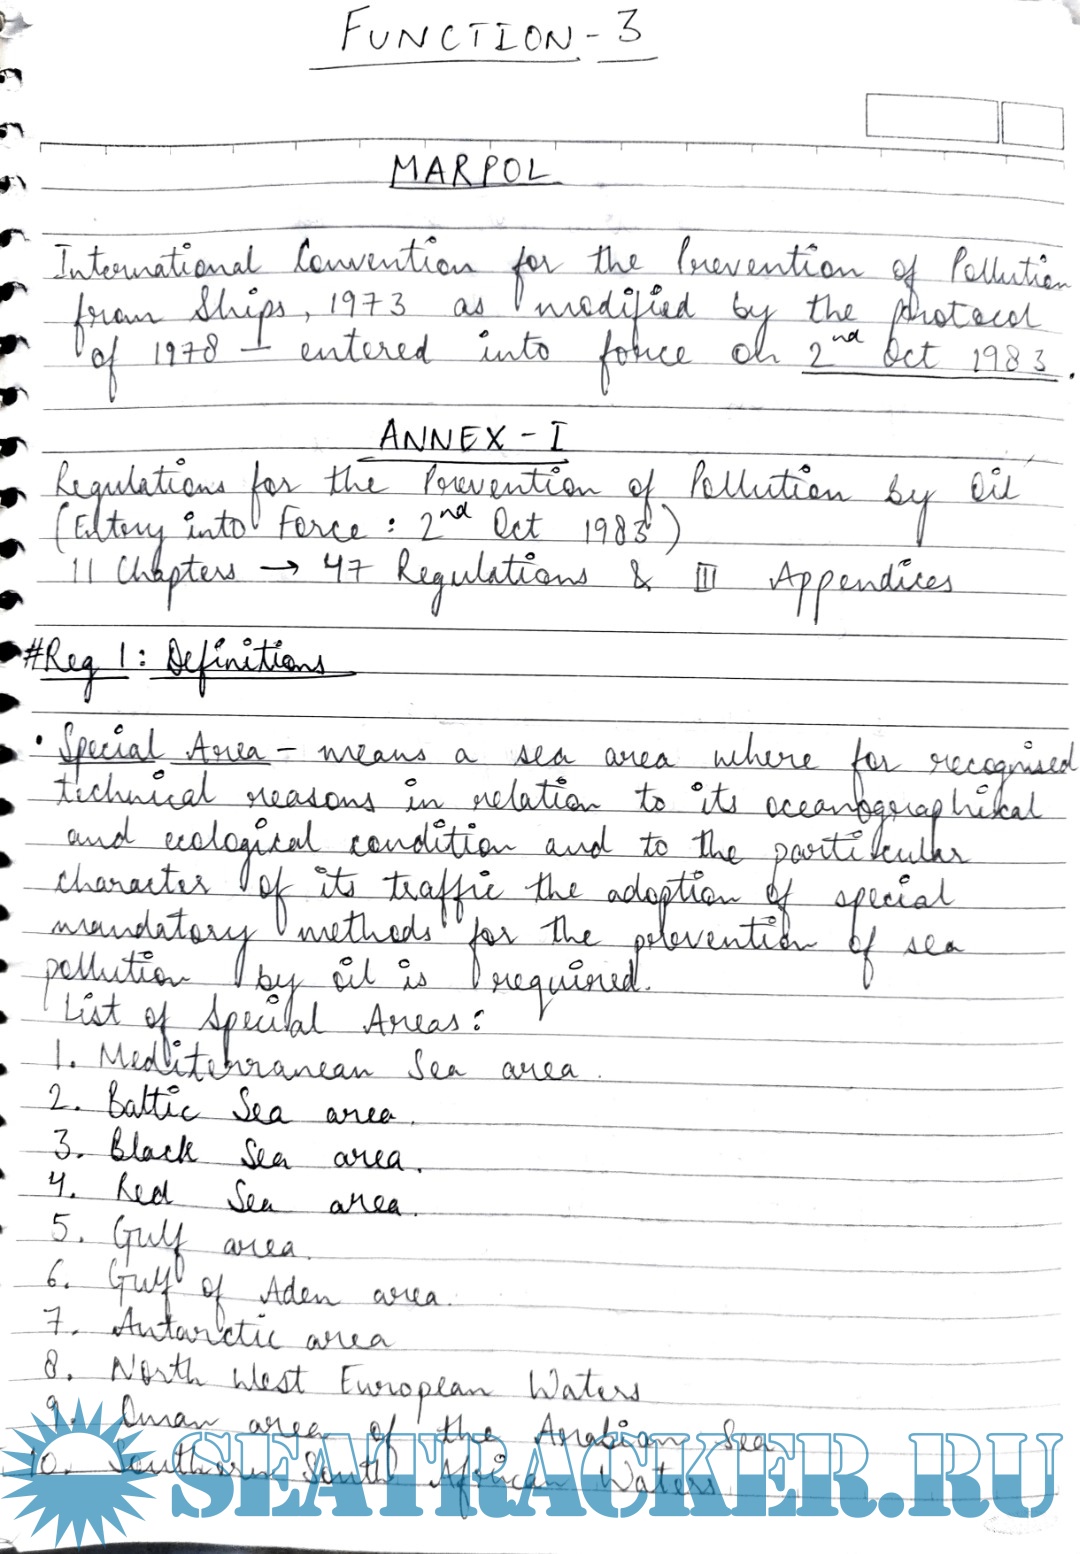 FUNCTION - 3
MARPOL
International Convention for the Prevention of Pollution
from Ships, 1973 as modified by the protocol
of 1978 – entered into force on 2nd Oct 1983.
ANNEX - I
Regulations for the Prevention of Pollution by Oil
(Entry into Force : 2nd Oct 1983)
11 Chapters → 47 Regulations & III Appendices
#Reg 1: Definitions
• Special Area – means a sea area where for recognised
technical reasons in relation to its oceanographical
and ecological condition and to the particular
character of its traffic the adoption of special
mandatory methods for the prevention of sea
pollution by oil is required.
List of Special Areas:
1. Mediterranean Sea area.
2. Baltic Sea area.
3. Black Sea area.
4. Red Sea area.
5. Gulf area.
6. Gulf of Aden area.
7. Antarctic area
8. North West European Waters
9. Oman area of the Arabian Sea
10. Southern South African Waters
SEATRACKER.RU